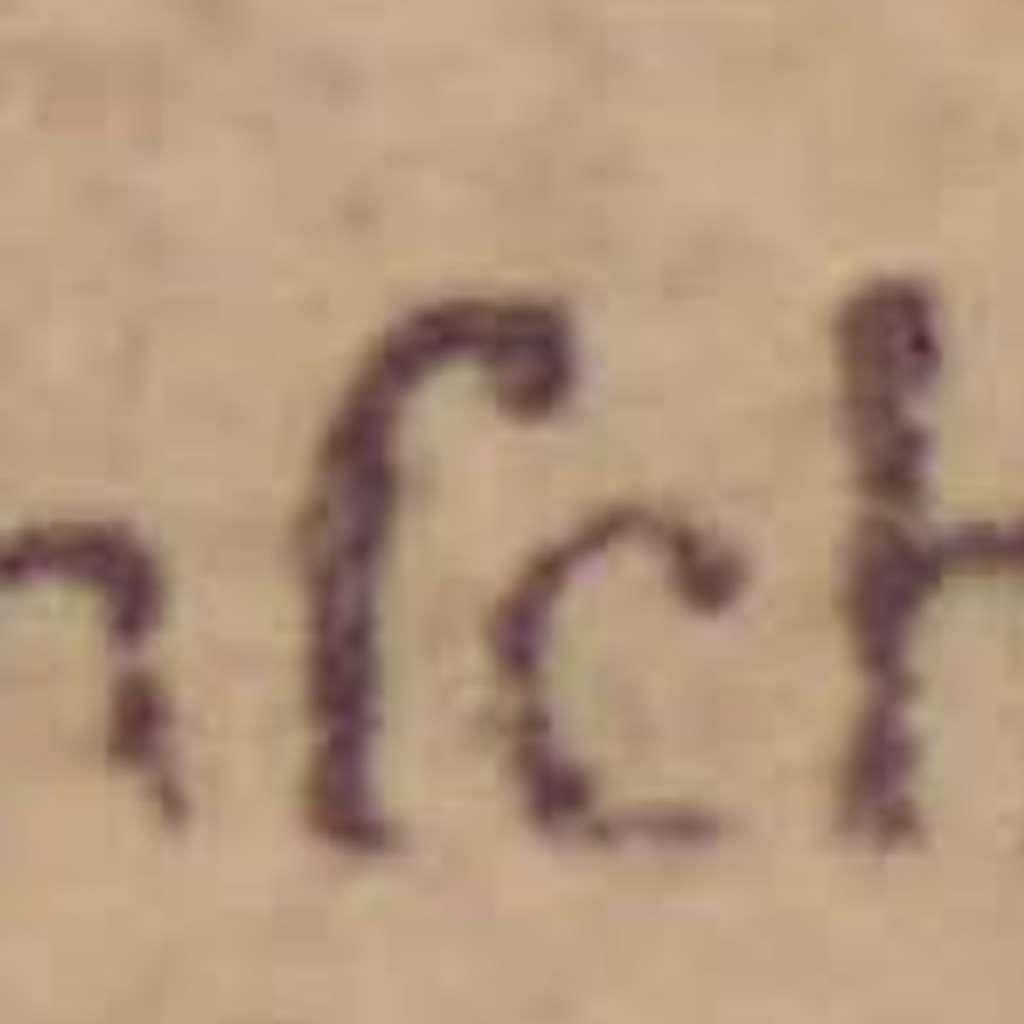 nſch